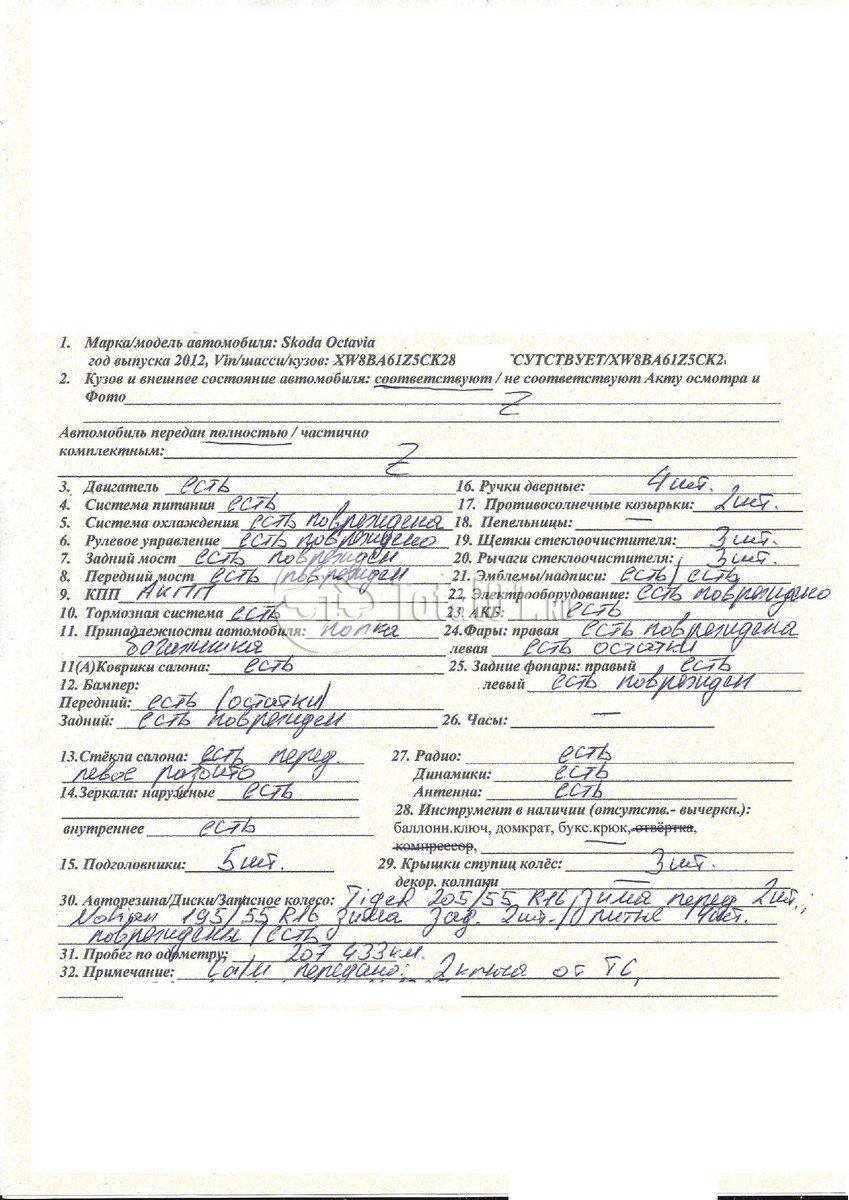 1. Марка/модель автомобиля: Skoda Octavia
год выпуска 2012, Vin/шасси/кузов: XW8BA61Z5CK28 СУТСТВУЕТ/XW8BA61Z5CK2
2. Кузов и внешнее состояние автомобиля: соответствуют / не соответствуют Акту осмотра и
Фото Z
Автомобиль передан полностью / частично
комплектным: Z
3. Двигатель есть
4. Система питания есть
5. Система охлаждения есть повреждена
6. Рулевое управление есть повреждено
7. Задний мост есть поврежден
8. Передний мост есть поврежден
9. КПП АКПП
10. Тормозная система есть
11. Принадлежности автомобиля: полка
багажника
11(А)Коврики салона: есть
12. Бампер:
Передний: есть (остатки)
Задний: есть поврежден
16. Ручки дверные: 4 шт.
17. Противосолнечные козырьки: 2 шт.
18. Пепельницы: —
19. Щетки стеклоочистителя: 3 шт.
20. Рычаги стеклоочистителя: 3 шт.
21. Эмблемы/надписи: есть/есть
22. Электрооборудование: есть повреждено
23. АКБ: есть
24.Фары: правая есть повреждена
левая есть остатки
25. Задние фонари: правый есть
левый есть поврежден
26. Часы: —
13.Стёкла салона: есть перед.
левое разбито
14.Зеркала: наружные есть
внутреннее есть
15. Подголовники: 5 шт.
27. Радио: есть
Динамики: есть
Антенна: есть
28. Инструмент в наличии (отсутств.- вычеркн.):
баллонн.ключ, домкрат, букс.крюк, отвёртка,
компрессор, —
29. Крышки ступиц колёс: 3 шт.
декор. колпаки —
30. Авторезина/Диски/Запасное колесо: Tiger 205/55 R16 зима перед 2шт.;
Nokian 195/55 R16 зима зад. 2шт./ литые 4шт.
повреждены/есть
31. Пробег по одометру: 207 433км.
32. Примечание: передано: 2 ключа от ТС,